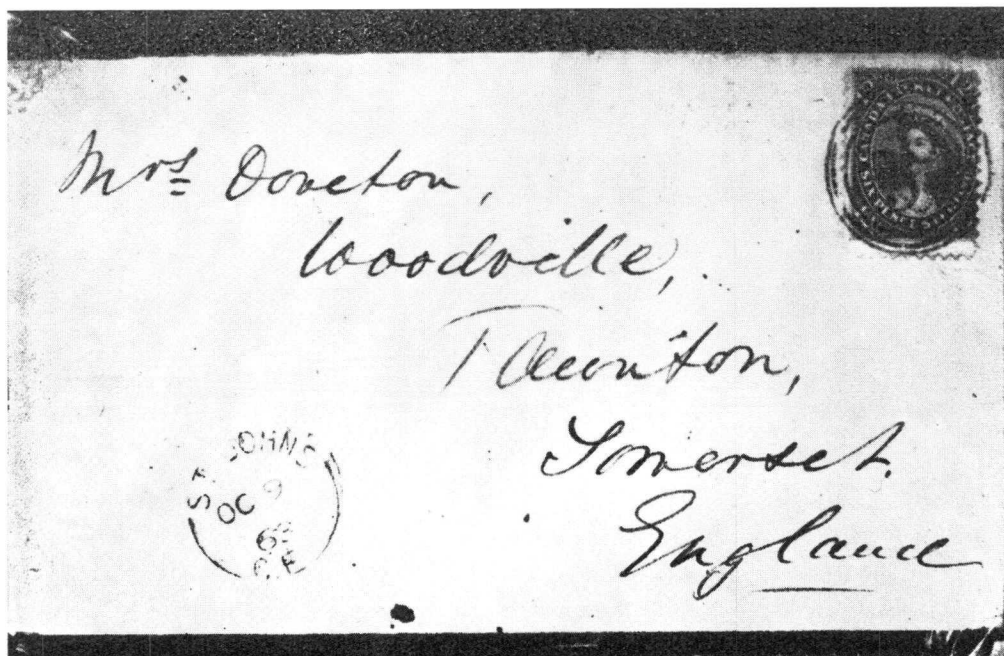 Mrs Doveton,
Woodville,
Taunton,
Somerset.
England
ST. JOHNS
OC 9
C.E